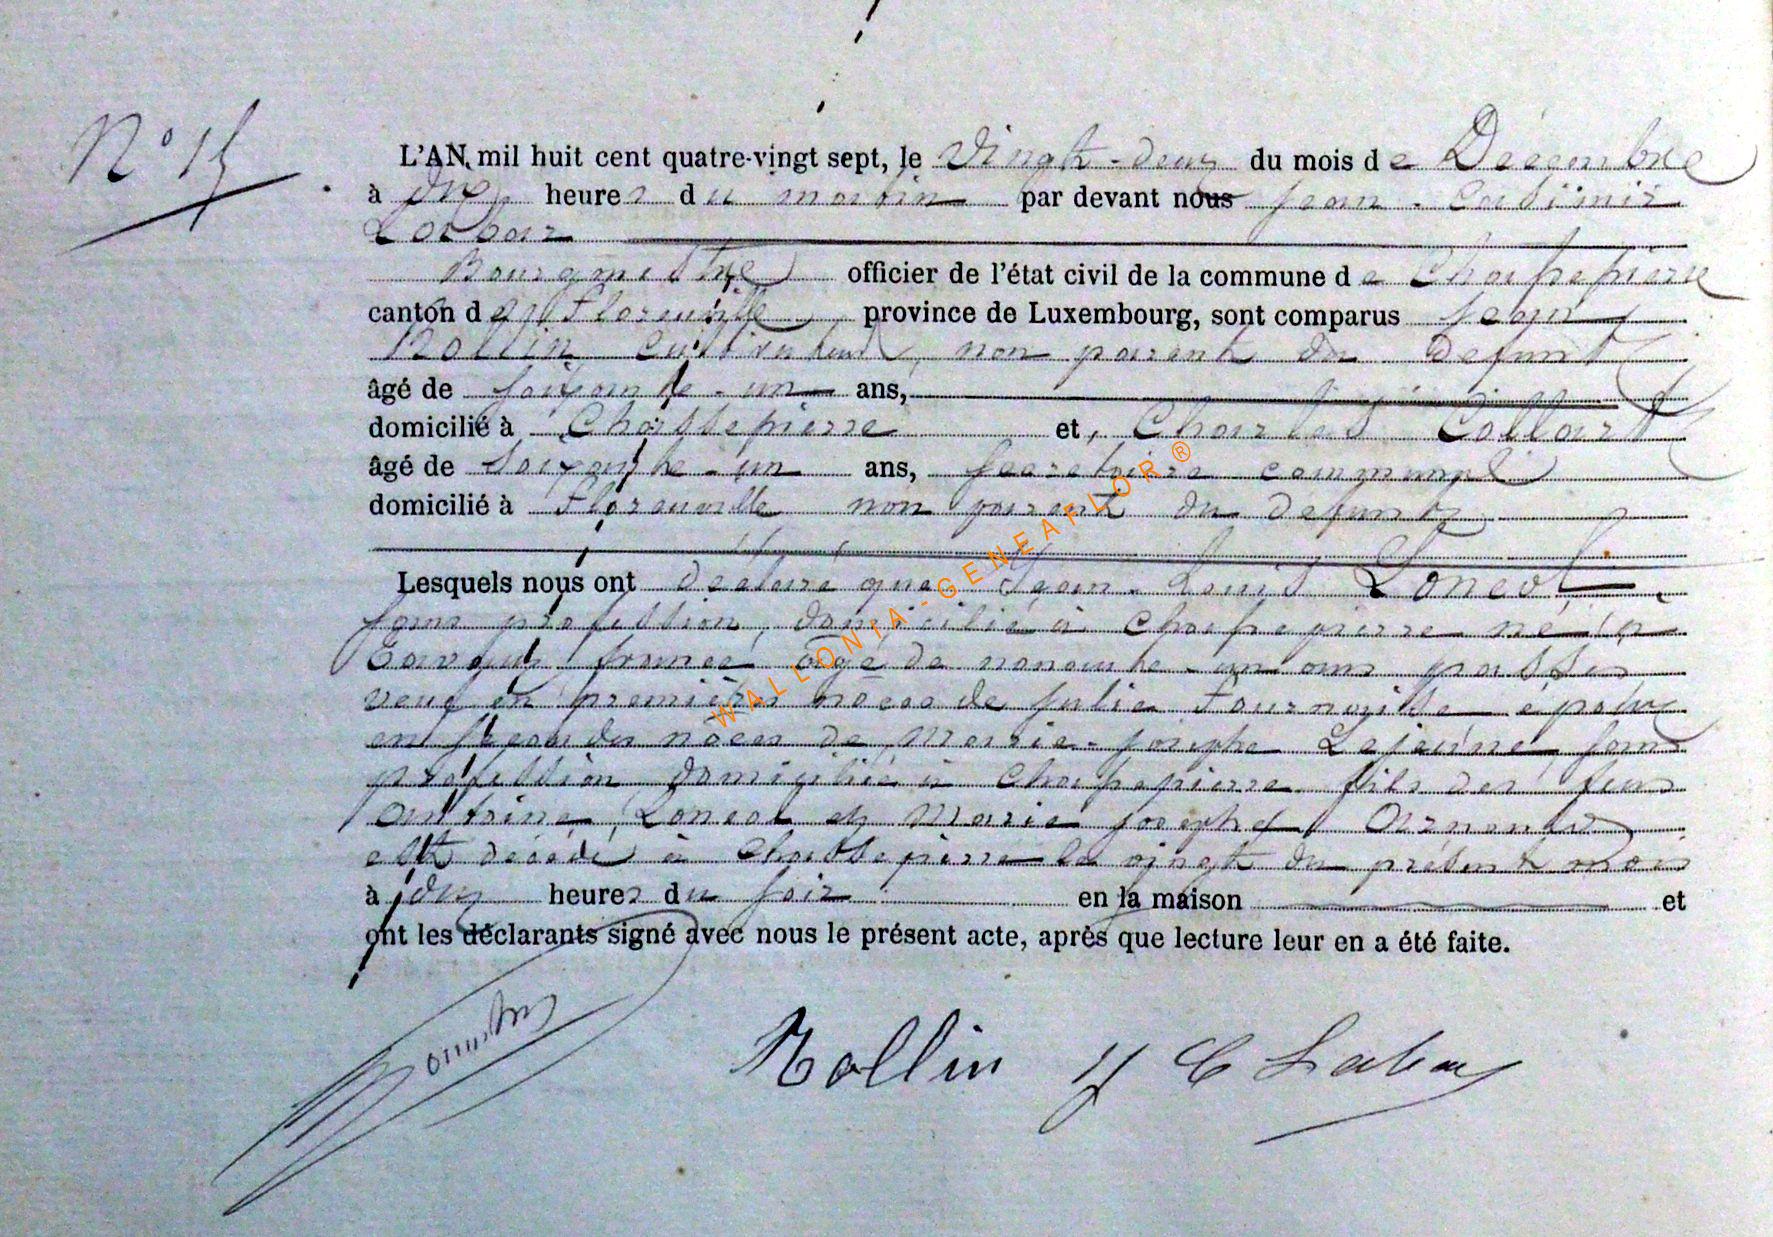 N° 15
L'AN mil huit cent quatre-vingt sept, le Vingt-deux du mois de Décembre
à dix heures du matin par devant nous Jean-Casimir
Labbar
Bourgmestre officier de l'état civil de la commune de Chassepierre
canton de Florenville province de Luxembourg, sont comparus Jean
Rollin Cultivateur, non parent du defunt
âgé de soixante-un ans,
domicilié à Chassepierre et, Charles Collart
âgé de soixante-un ans, secretaire communal
domicilié à Florenville non parent du defunt
Lesquels nous ont déclaré que Jean-Louis Loncol
sans profession, domicilié à Chassepierre né à
france âgé de nonante-un ans passés
veuf en premières nôces de Julie Fournaise époux
en secondes nôces de Marie-Josèphe Lejeune sans
profession domiciliée à Chassepierre fils des feus
Antoine Loncol et Marie Josèphe
est décédé à Chassepierre le vingt du présent mois
à dix heures du soir en la maison et
ont les déclarants signé avec nous le présent acte, après que lecture leur en a été faite.
Rollin J C Labbar
WALLONIA-GENEAFLOR ®